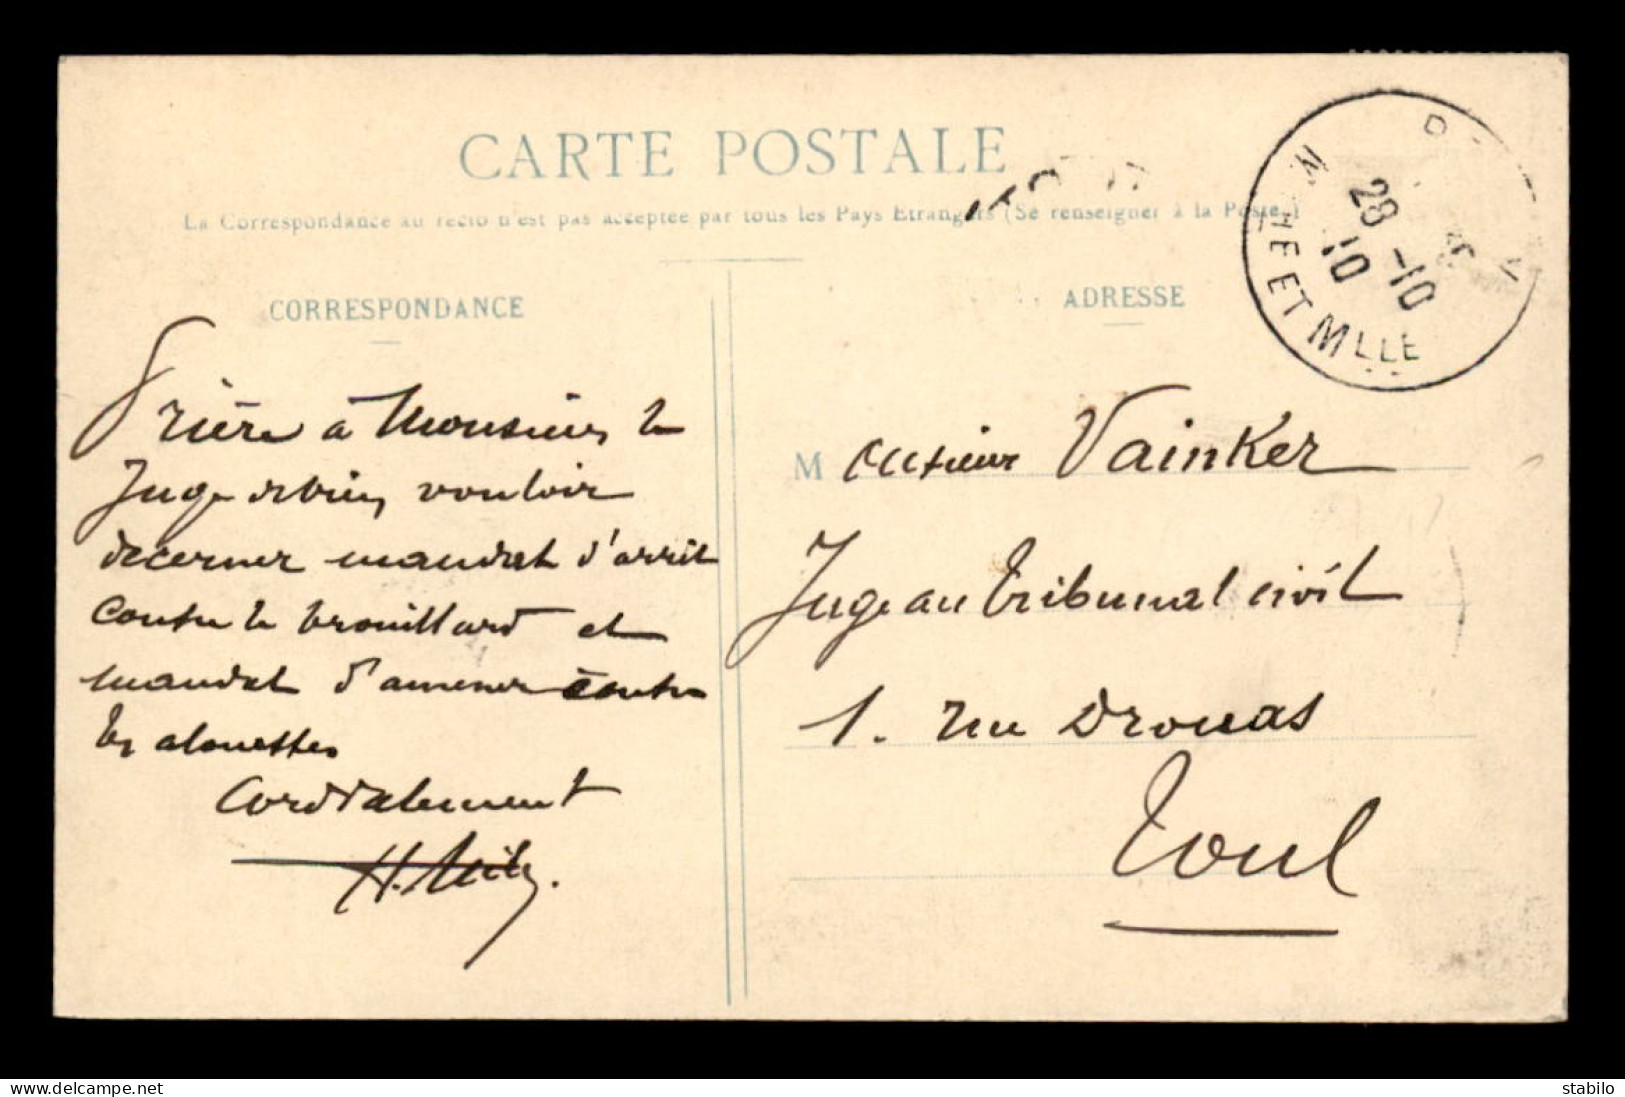 CARTE POSTALE
La Correspondance au recto n'est pas acceptée par tous les Pays Etrangers (Se renseigner à la Poste.)
CORRESPONDANCE
Prière à Monsieur le
Juge de bien vouloir
décerner mandat d'arrêt
contre le brouillard et
mandat d'amener contre
les alouettes
Cordialement
H.
ADRESSE
Monsieur Vainker
Juge au tribunal civil
1. rue Drouas
Toul
28 -10
10
M HE ET MLLE
delcampe.net
stabilo